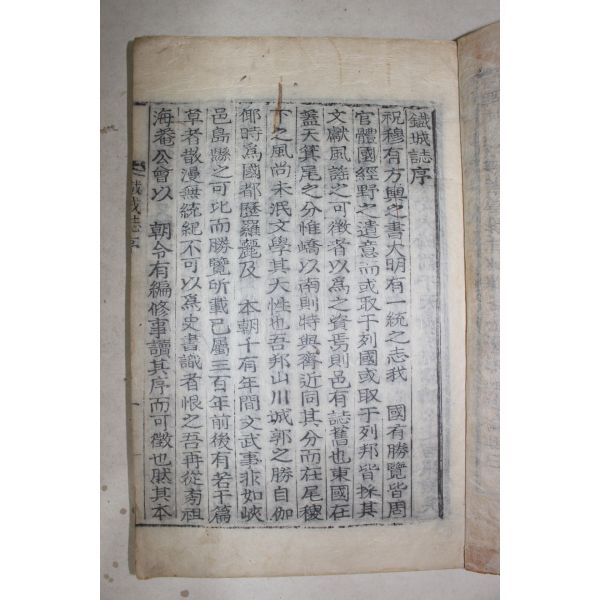 鐵城誌序
祝穆有方輿之書大明有一統之志我 國有勝覽皆周
官體國經野之遺意而或取于列國或取于列邦皆採其
文獻風謠之可徵者以爲之資焉則邑有誌舊也東國在
蓋天箕尾之分惟嶠以南則特與齊近同其分而在尾稷
下之風尚未泯文學其天性也吾邦山川城郭之勝自伽
倻時爲國都歷羅麗及 本朝千有年間文武事非如峽
邑島縣之可比而勝覽所載已屬三百年前後有若干篇
草者散漫無統紀不可以爲史書識者恨之吾再從 祖
海菴公會以 朝令有編修事讀其序而可徵也肰其本
鐵城誌序